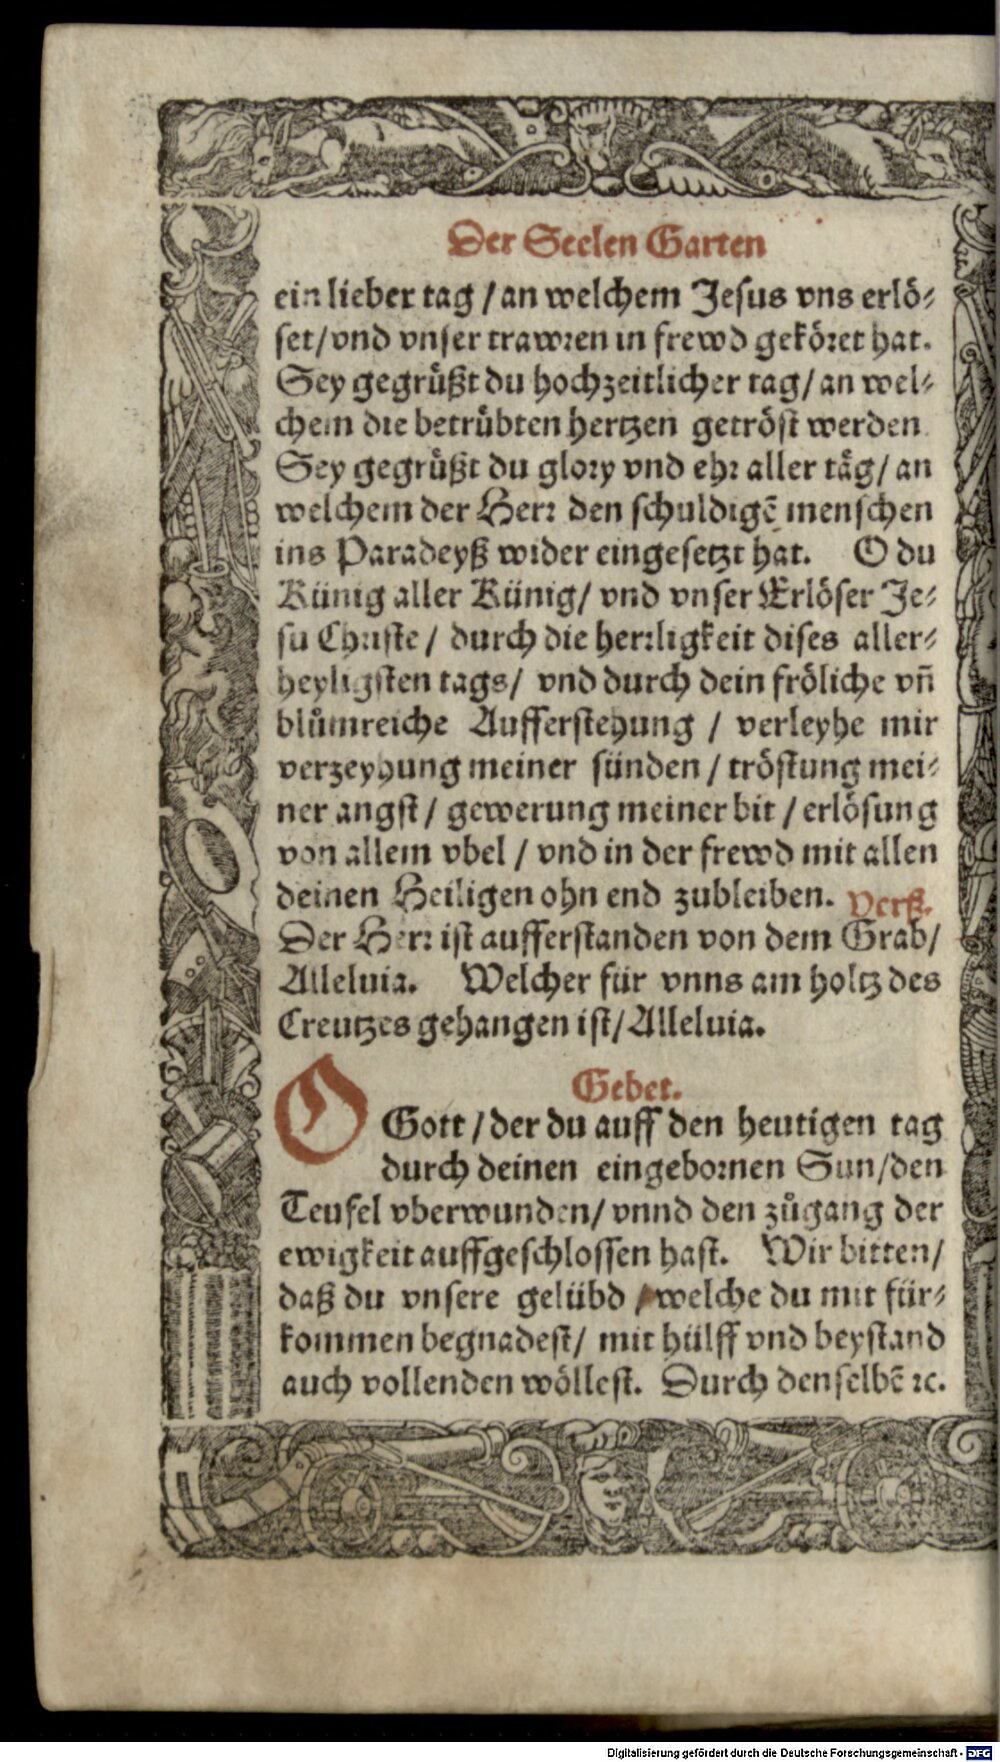 Der Seelen Garten
ein lieber tag / an welchem Jesus vns erlö⸗
set / vnd vnser trawren in frewd geköret hat.
Sey gegrüßt du hochzeitlicher tag / an wel⸗
chem die betrübten hertzen getröst werden
Sey gegrüßt du glory vnd ehr aller täg / an
welchem der Herr den schuldigẽ menschen
ins Paradeyß wider eingesetzt hat. O du
Künig aller Künig / vnd vnser Erlöser Je⸗
su Christe / durch die herrligkeit dises aller⸗
heyligsten tags / vnd durch dein fröliche vñ
blůmreiche Aufferstehung / verleyhe mir
verzeyhung meiner sünden / tröstung mei⸗
ner angst / gewerung meiner bit / erlösung
von allem vbel / vnd in der frewd mit allen
deinen Heiligen ohn end zubleiben. Verß.
Der Herr ist aufferstanden von dem Grab /
Alleluia. Welcher für vnns am holtz des
Creutzes gehangen ist / Alleluia.
Gebet.
O Gott / der du auff den heutigen tag
durch deinen eingebornen Sun / den
Teufel vberwunden / vnnd den zůgang der
ewigkeit auffgeschlossen hast. Wir bitten /
daß du vnsere gelübd / welche du mit für⸗
kommen begnadest / mit hülff vnd beystand
auch vollenden wöllest. Durch denselbẽ ꝛc.
Digitalisierung gefördert durch die Deutsche Forschungsgemeinschaft - DFG